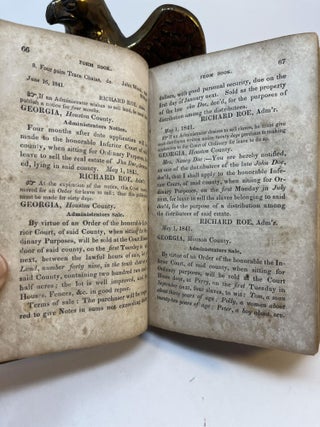 66 FORM BOOK.
9. Four pair Trace Chains, &c. John
June 16, 1841.
RICHARD ROE, Adm'r.
If an Administrator wishes to sell land, he must
publish a notice for four months.
GEORGIA, Houston County.
Administrators Notice.
Four months after date application will be
made to the honorable Inferior Court of said
county, when sitting for Ordinary Purposes, for
leave to sell the real estate of Jno Doe,
ed, lying in said county. May 1, 1841.
RICHARD ROE, Adm'r.
At the expiration of the notice, the Court
Ordinary for an Order for leave to sell; then this
must be made for sixty days.
GEORGIA, Houston County.
Administrators Sale.
By virtue of an Order of the honorable the In-
ferior Court, of said county, when sitting for Or-
dinary Purposes, will be sold at the Court
door, at Perry, on the first Tuesday in
next, between the lawful hours of sale,
Land, number forty nine, in the tenth district
said County, containing two hundred two
acres; the lot is well improved, and
House, Fences, &c. in good repair.
Terms of sale: The purchaser will be required
to give Notes in sums not exceeding
FORM BOOK. 67
dollars, with good personal security, due on the
first day of January next. Sold as the property
of the late Jno Doe, dec'd, for the purposes of
distribution.
RICHARD ROE, Adm'r.
May 1, 1841.
If an Administrator
GEORGIA, Houston County.
Mrs. Nancy Doe—You are hereby notified,
as one of the distributees of the late John Doe,
dec'd, that I shall apply to the honorable Inferior
Court, of said county, when sitting for Ordi-
nary Purposes, on the first Monday in July
next, for leave to sell the slaves belonging to said
estate, for the purpose of distribution among the
distributees of said estate.
RICHARD ROE, Adm'r.
May 1, 1841.
GEORGIA, Houston County.
Administrators Sale.
By virtue of an Order of the honorable the In-
ferior Court, of said county, when sitting for
Ordinary Purposes, will be sold at the Court
House door, at Perry, on the first Tuesday in
September next, four slaves, to wit: Tom, a man
about years of age; Polly, a woman about
twenty-two years of age; Peter, a boy about